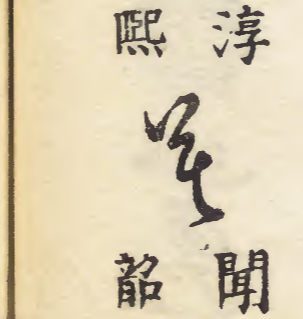 淳熙
聞韶